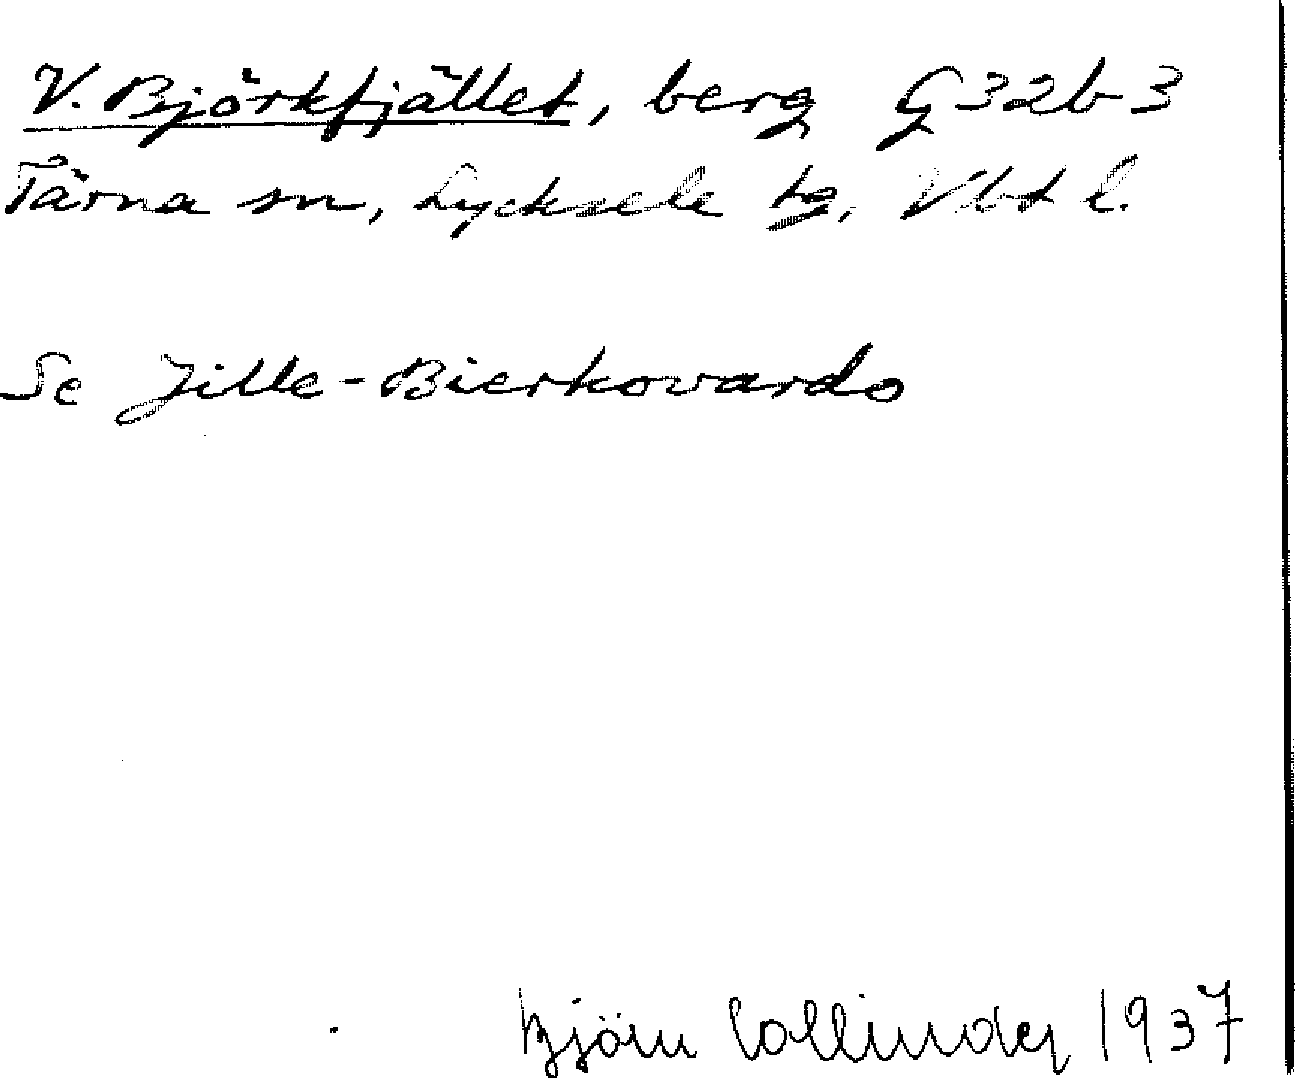 V. Björkfjället, berg G32b3
Tärna sn, Lycksele tg, Vbt l.
Se Jille-Bierkovardo
Björn Collinder 1937